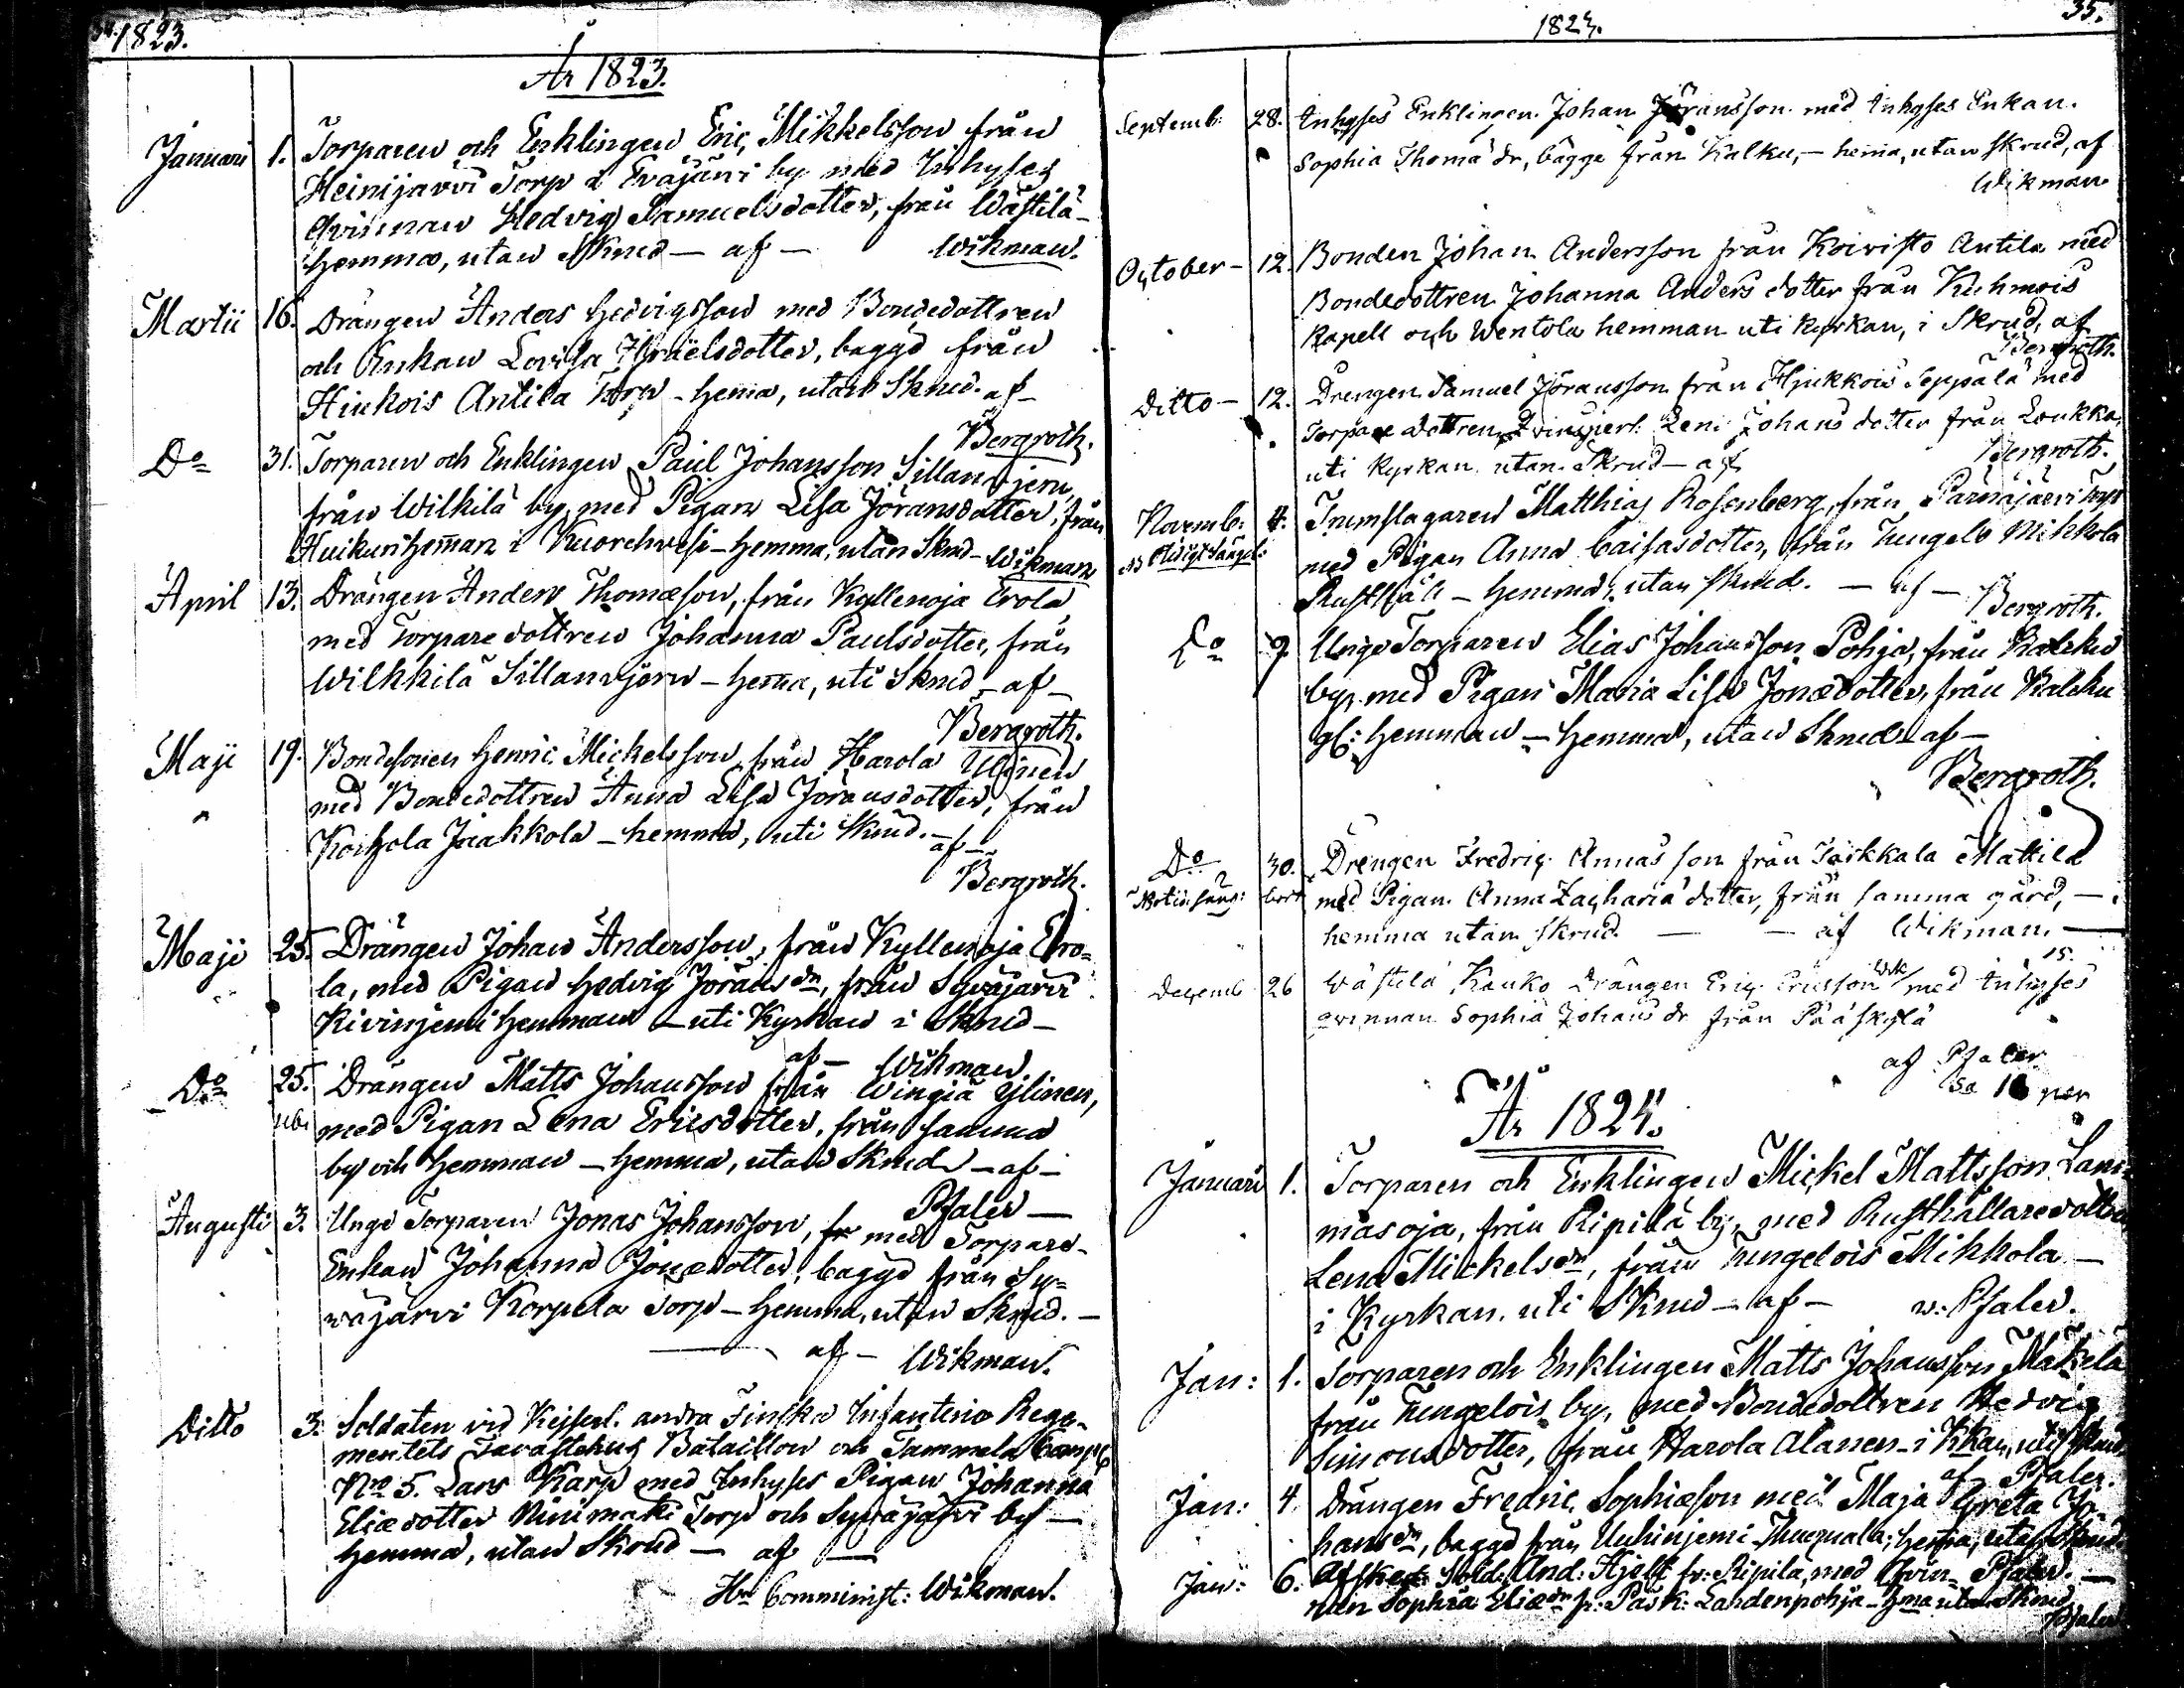 34. 1823.
År 1823.
Januari 1. Torparen och Enklingen Eric Mikkelsson från
Heinijärvi Torp i Eväjärvi by med Inhyses
Qvinnan Hedvig Samuelsdotter, från Wästilä
hemma, utan Skrud — af — Wikman.
Martii 16. Drängen Anders Hedvigsson med Bondedottren
och Enkan Lovisa Israelsdotter, bägge från
Hiukois Antila Torp - hema, utan Skrud. af -
Bergroth.
Do 31. Torparen och Enklingen Paul Johansson Sillan
från Wilkilä by, med Pigan Lisa Jöransdotter, från
Huikuri heman i Kuorehvesi - hemma, utan Skrud - Wikman
April 13. Drängen Anders Thomæson, från Kyllenoja Erola
med Torparedottren Johanna Paulsdotter, från
Wilkkilä Sillan - hema, uti Skrud - af -
Bergroth.
Maji 19. Bondesonen Henric Mickelsson från Harola Ylinen
med Bondedottren Anna Lisa Jöransdotter, från
Korhola Jaakkola - hemma, uti Skrud. - af -
Bergroth.
Maji 25. Drängen Johan Andersson, från Kyllenoja Ero=
la, med Pigan Hedvig Jörans dr, från Syväjärvi
Kivinjemi hemman - uti Kyrkan i Skrud -
af - Wikman
Do 25. Drängen Matts Johansson från Wingiä Ylinen,
med Pigan Lena Ericsdotter, från samma
by och hemman - hemma, utan Skrud - af -
Pfaler -
Augusti 3. Unge Torparen Jonas Johansson, med Torpare-
Enkan Johanna Jonædotter, bägge från Sy=
väjärvi Korpela Torp - hemma, utan Skrud. -
af - Wikman.
Ditto 3. Soldaten vid Kejserl. andra Finska Infanterie Rege-
mentets Tavastehus Bataillon och Tammela Comp
No 5. Lars Karp med Inhyses Pigan Johanna
Eliædotter Niinimäki Torp och Syväjärvi by -
hemma, utan Skrud — af —
Hr Comminist: Wikman.
1823. 35.
Septemb: 28. Inhyses Enklingen Johan Jöransson med Inhyses Enkan
Sophia Thomæ dr, bägge från Kalku, - hema, utan skrud, af
Wikman
October - 12. Bonden Johan Andersson från Koivisto Antila med
Bondedottren Johanna Anders dotter från Kuhmois
kapell och Wentola hemman uti kyrkan, i Skrud, af
Bergroth.
Ditto - 12. Drengen Samuel Jöransson från Hjukkois Seppälä med
Torpare dottren Leni Johans dotter från Loukka
uti kyrkan utan Skrud - af Bergroth.
Novemb: 4. Trumslagaren Matthias Rosenberg, från Pärnäjärvi Torp
med Pigan Anna Caisasdotter, från Lengelö Mikkola
Rusthåll - hemma, utan skrud. - af - Bergroth.
Do 9 Unge Torparen Elias Johansson Pohja, från Kalcku
by, med Pigan Maria Lisa Jonædotter, från Kalcku
gl: hemman - hemma, utan Skrud af -
Bergroth.
Do 30. Drengen Fredrig Annas son från Taikkala Mattila
med Pigan Anna Zacharia dotter, från samma gård, -
hemma utan skrud. — af Wikman. —
Decemb 26 Wästilä Kauko Drängen Eric Ericsson med Inhyses
qvinnan Sophia Johans dr från Pääskylä
af Pfaler
Sa 16 par
År 1824.
Januarii 1. Torparen och Enklingen Mickel Mattsson Lam=
masoja, från Ripilä by, med Rusthållaredottren
Lena Mickels dr, från Lengelois Mikkola -
i Kyrkan, uti Skrud - af - v: Pfaler.
Jan: 1. Torparen och Enklingen Matts Johansson Mäkelä
från Lengelois by, med Bondedottren Hedvig
Simonsdotter, från Harola Alanen - i Kkan, uti Skrud
af Pfaler.
Jan: 4. Drängen Fredric Sophiæson med Maja Greta Jo=
hans dr, bägge från Uuhinjemi hema, utan Skrud.
Jan: 6. Afsked: Sold: And: Hjelt fr: Ripila, med Qvin= Pfaler. -
nan Sophia Eliæ dr fr: Pääsk: Lahdenpohja - hma utan Skrud
Pfaler